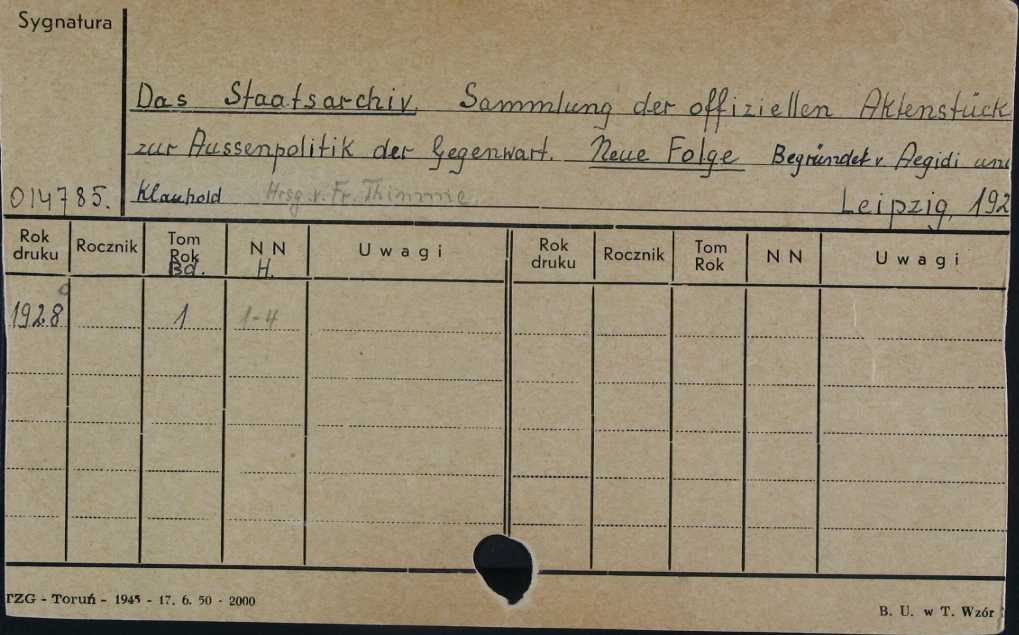 Sygnatura
Das Staatsarchiv. Sammlung der offiziellen Aktenstück
zur Aussenpolitik der Gegenwart. Neue Folge Begründet v. Aegidi und
014785. Klauhold Hrsg. v. Fr. Thimme. Leipzig, 192
Rok druku Rocznik Tom Rok Bd. N N H. Uwagi Rok druku Rocznik Tom Rok N N Uwagi
1928 1 1-4
TZG - Toruń - 1945 - 17. 6. 50 - 2000
B. U. w T. Wzór